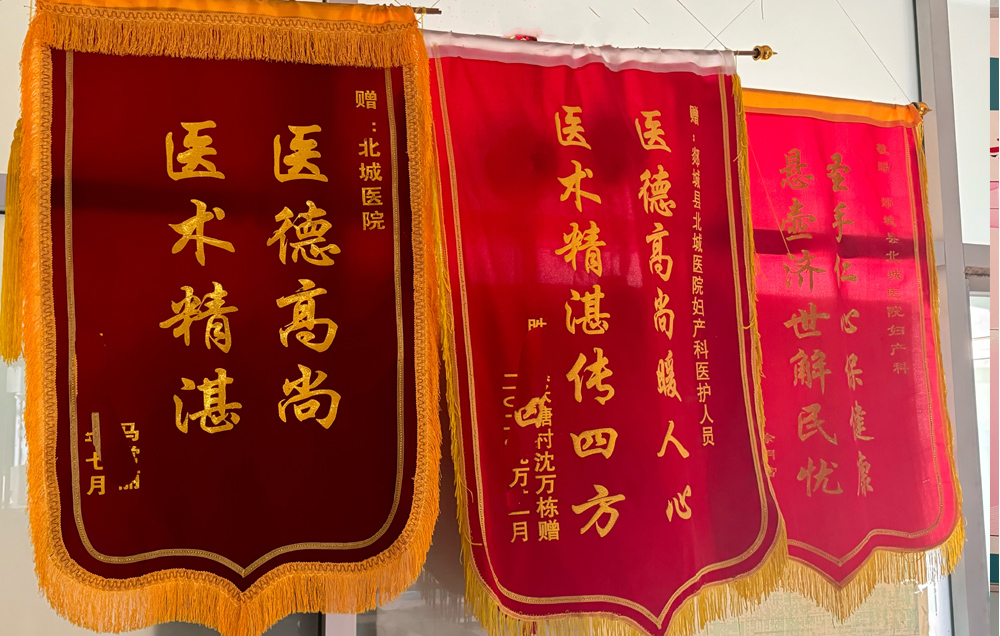 赠：北城医院
医德高尚
医术精湛
七月
赠：郯城县北城医院妇产科医护人员
医德高尚暖人心
医术精湛传四方
塘村沈万栋赠
月
郯城县北城医院妇产科
圣手仁心保健康
悬壶济世解民忧